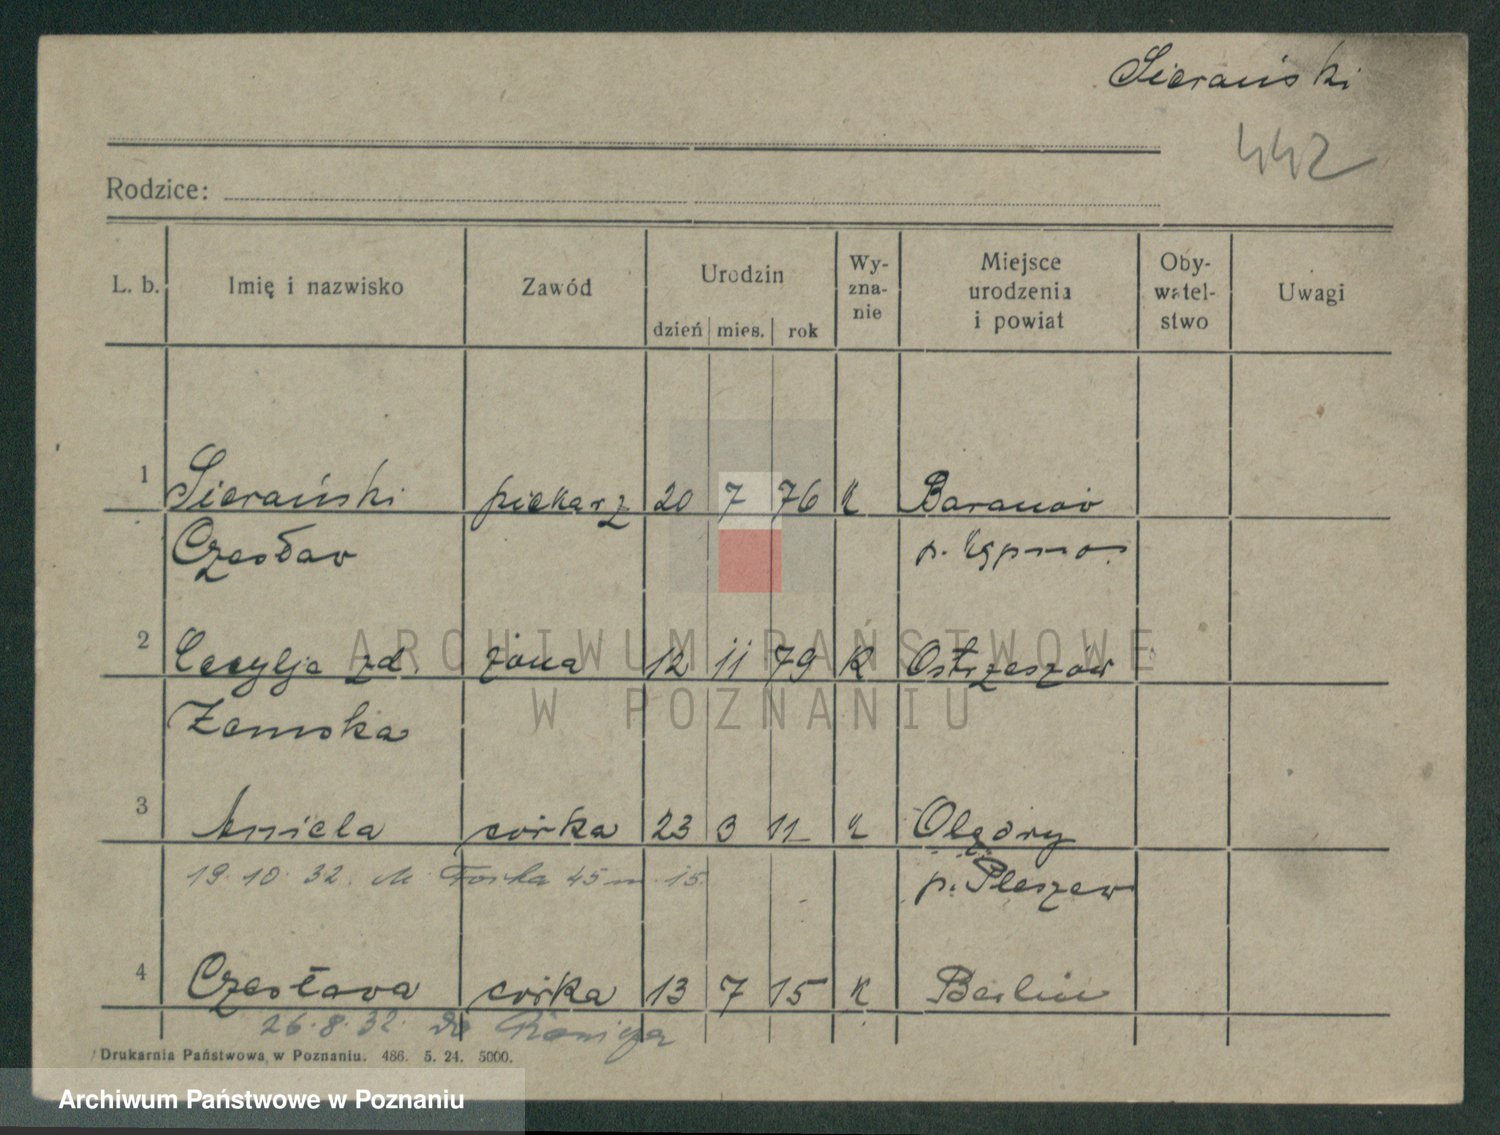 Sierański
442
Rodzice:
L. b. Imię i nazwisko Zawód Urodzin dzień mies. rok Wy-zna-nie Miejsce urodzenia i powiat Oby-watel-stwo Uwagi
1 Sierański piekarz 20 7 76 K Baranów
Czesław p. Kępno.
2 Cecylja zd. żona 12 11 79 K Ostrzeszów
Zamska
3 Aniela córka 23 3 11 K Olędry
19.10.32. M. 45 m. 15. p. Pleszew
4 Czesława córka 13 7 15 K Berlin
26.8.32. do
Drukarnia Państwowa w Poznaniu. 486. 5. 24. 5000.
ARCHIWUM PAŃSTWOWE
W POZNANIU
Archiwum Państwowe w Poznaniu